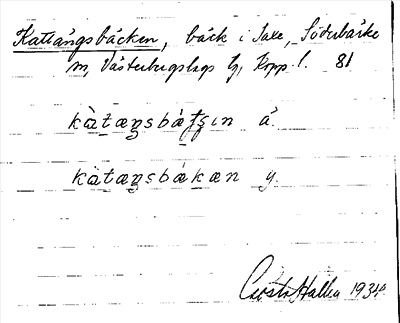 Kattängsbäcken, bäck i Saxe, Söderbärke
sn, Västerbergslags tg, Kopp. l. 81
kàtæŋsbátʃɩn ä.
kàtæŋsbákæn y.
Gösta Hallen 1934